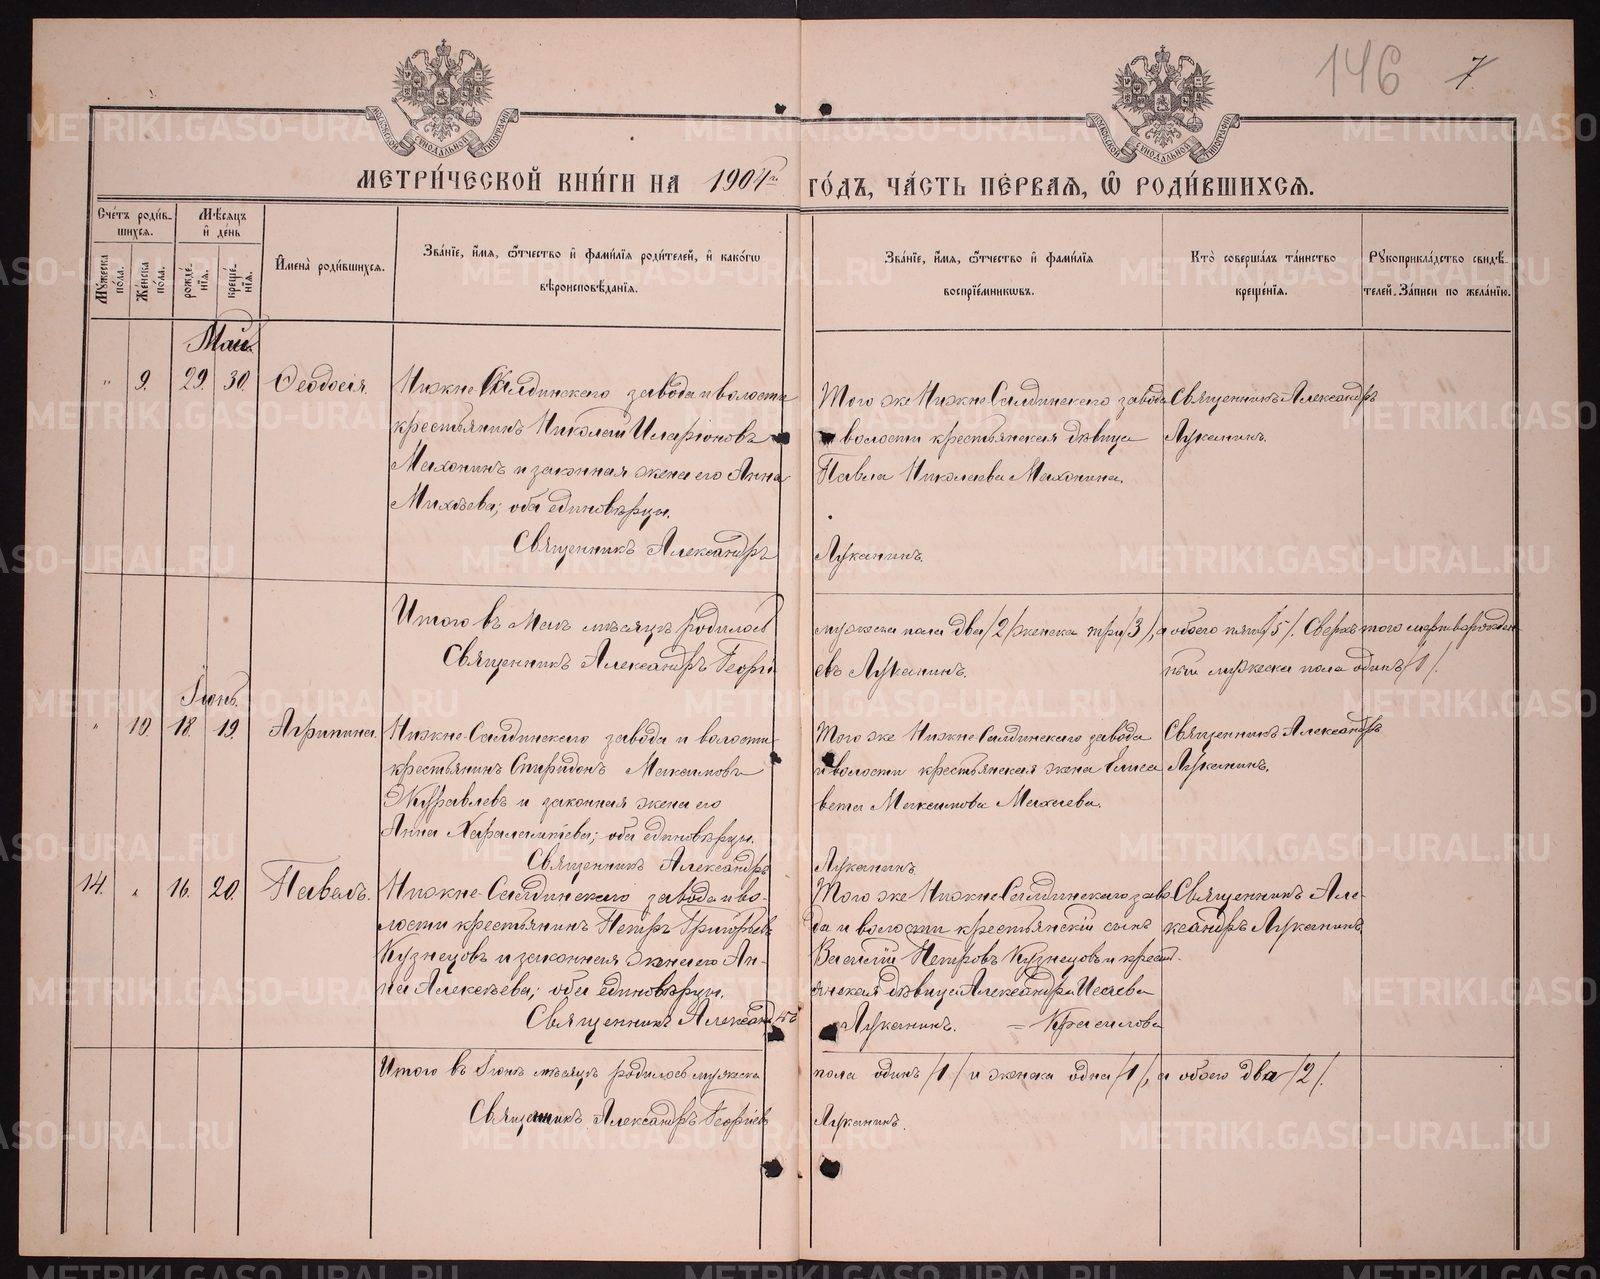 146 7
МОСКОВСКОЙ СѴНОДАЛЬНОЙ ТИПОГРАФІИ
МОСКОВСКОЙ СѴНОДАЛЬНОЙ ТИПОГРАФІИ
МЕТРИ́ЧЕСКОЙ КНИ́ГИ НА 1904 г. ГО́ДЪ, ЧА́СТЬ ПЕ́РВАЯ, Ѡ҆ РОДИ́ВШИХСЯ.
Сче́тъ роди́в-
шихся.
Му́жеска по́ла.
Же́нска по́ла.
Мѣ́сяцъ
и҆ де́нь
рожде́-
нїя.
креще́-
нїя.
И҆мена̀ роди́вшихся.
Зва́нїе, и҆́мя, ѻ҆́тчество и҆ фами́лїя роди́телей, и҆ како́гѡ
вѣроисповѣ́данїя.
Зва́нїе, и҆́мя, ѻ҆́тчество и҆ фами́лїя
воспрїе́мникѡвъ.
Кто̀ соверша́лъ та́инство
креще́нїя.
Рꙋкоприкла́дство свидѣ́-
телей. За́писи по жела́нїю.
Май.
" 9. 29. 30. Ѳеодосія.
Нижне-Салдинскаго завода и волости
крестьянинъ Николай Иларіоновъ
Махонинъ и законная жена его Анна
Михѣева; оба единовѣрцы.
Священникъ Александръ
Того же Нижне-Салдинскаго завода
и волости крестьянская дѣвица
Павла Николаева Махонина.
Луканинъ.
Священникъ Александръ
Луканинъ.
Итого въ Маѣ мѣсяцѣ родилось
мужеска пола два /2/ женска три /3/, а обоего пять /5/. Сверхъ того мертворожден-
ный мужеска пола одинъ /1/.
Священникъ Александръ Георгі-
евъ Луканинъ.
Іюнь.
" 10. 18. 19. Агрипина.
Нижне-Салдинскаго завода и волости
крестьянинъ Спиридонъ Максимовъ
Журавлевъ и законная жена его
Анна Харалампіева; оба единовѣрцы.
Священникъ Александръ
Того же Нижне-Салдинскаго завода
и волости крестьянская жена Елиса
вета Максимова
Луканинъ
Священникъ Александръ
Луканинъ.
14. " 16. 20. Павелъ.
Нижне-Салдинскаго завода и во-
лости крестьянинъ Петръ Григорьевъ
Кузнецовъ и законная жена его Ан-
на Алексѣева; оба единовѣрцы.
Священникъ Александръ
Того же Нижне-Салдинскаго заво
да и волости крестьянскій сынъ
Василій Петровъ Кузнецовъ и крест-
янская дѣвица Александра Исаева
Луканинъ. = Красилова
Священникъ Але-
ксандръ Луканинъ.
Итого въ Іюнѣ мѣсяцѣ родилось мужеска
пола одинъ /1/ и женска одна /1/, а обоего два /2/.
Священникъ Александръ Георгіевъ
Луканинъ.
METRIKI.GASO-URAL.RU